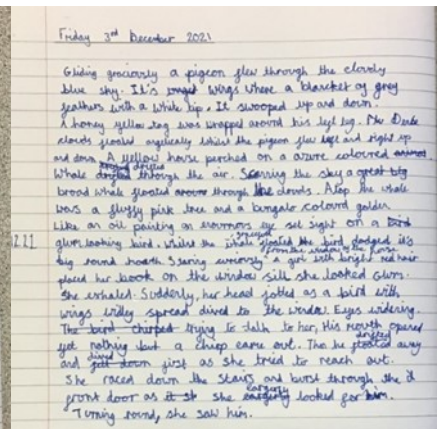 Friday 3rd December 2021
Gliding graciously a pigeon flew through the cloudy
blue sky. It's wings where a blancket of grey
feathers with a white tip. It swooped up and down.
A honey yellow tag was wrapped around his left leg. The
clouds floated angelically whilst the pigeon flew left and right up
and down. A yellow house perched on a azure coloured
whale through the air. Scarring the sky a great big
broad whale floated around through the clouds. Atop the whale
was a fluffy pink tree and a
Like an oil painting an eye set sight on a bird
221 glum looking bird. Whilst the whale floated the bird dodged it's
big round
from the window of the house
Staring curiously a girl with bright red hair
placed her book on the window sill she looked Glum.
She exhaled. Suddenly, her head jolted as a bird with
wings spread dived to the window Eyes widering.
The bird chirped trying to talk to her, His mouth opened
yet nothing but a chirp came out. Then he floated away
and dived down just as she tried to reach out.
She raced down the stairs and burst through the
front door as it she looked for him.
Turning round, she saw him.